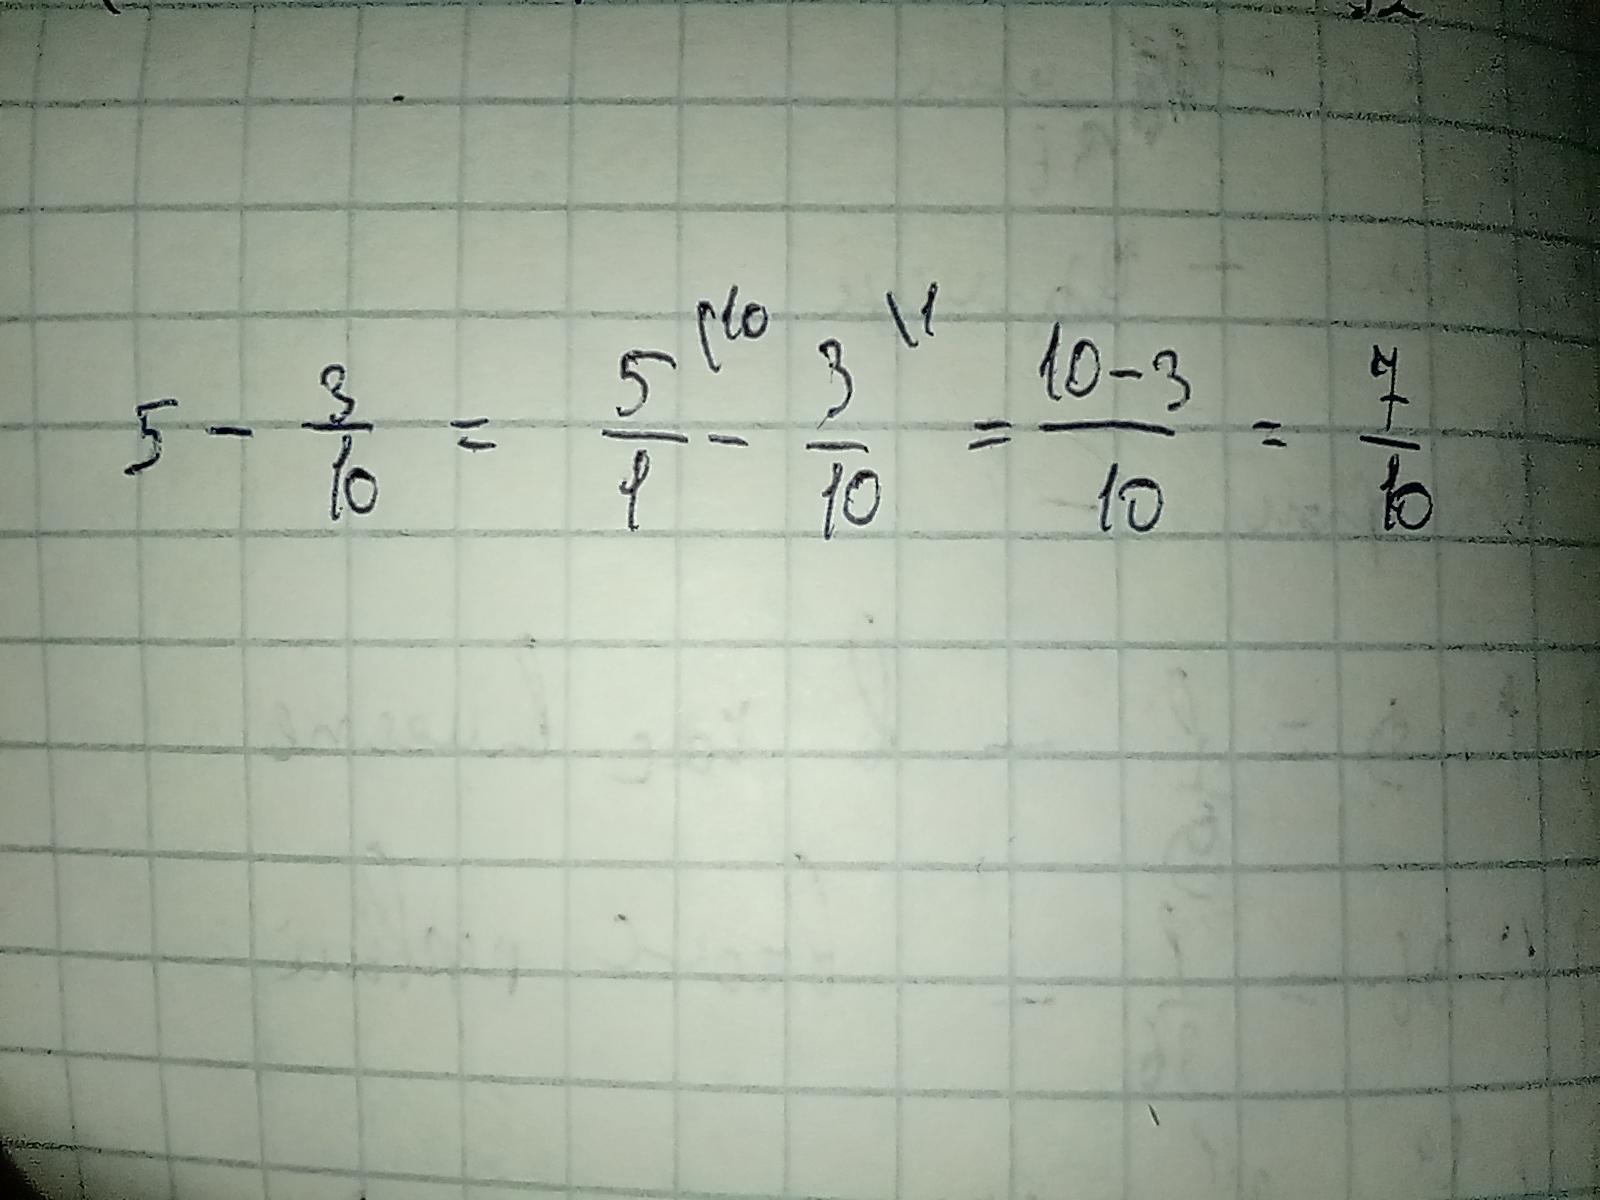 5 - 3/10 = 5/1 \10 - 3/10 \1 = 10-3/10 = 7/10